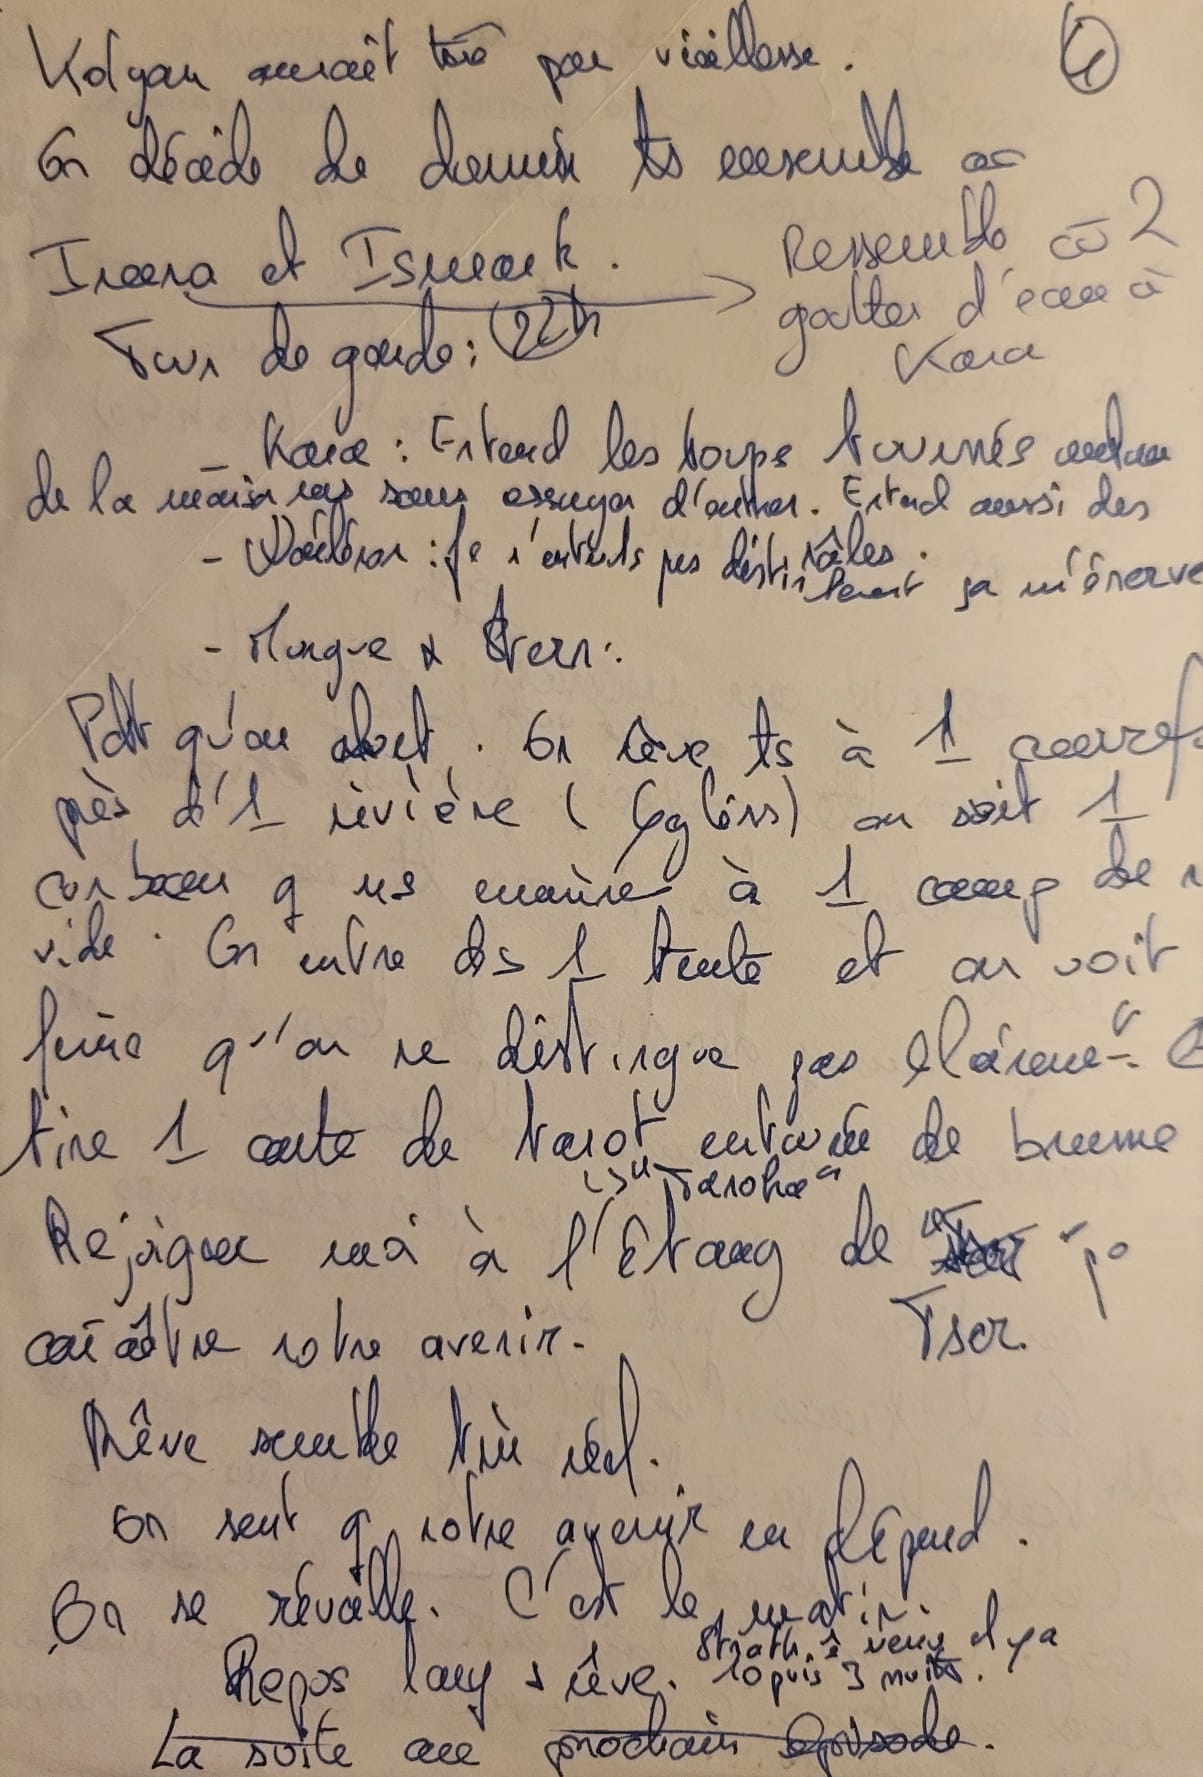 Kolyan aurait tué par vieillesse. ④
On décide de dormir ts ensemble
Ireena et Ismark.
Ressemble cō 2
gouttes d'eau à
Kaia
Tour de garde : 22h
- Kaia : Entend les loups tournés autour
de la maison mais sans essayer d'entrer. Entend aussi des
râles.
- : Je n'entends pas distinctement ça m'énerve
- Morgue & Stern :
Pdt qu'on dort. On rêve ts à 1
près d'1 rivière ( ) on voit 1
corbeau q ns amène à 1 camp de
vide. On entre ds 1 tente et on voit
qu'on ne distingue pas clairement.
tire 1 carte de tarot entourée de brume
"Tarokka"
Rejoignez moi à l'Étang de
Tser.
connaître votre avenir.
Rêve semble très réel.
On sent q notre avenir en dépend.
On se réveille. C'est le matin.
Repos long + rêve. Strahd. est venu il y a
10 puis 3 nuits.
La suite au prochain épisode.